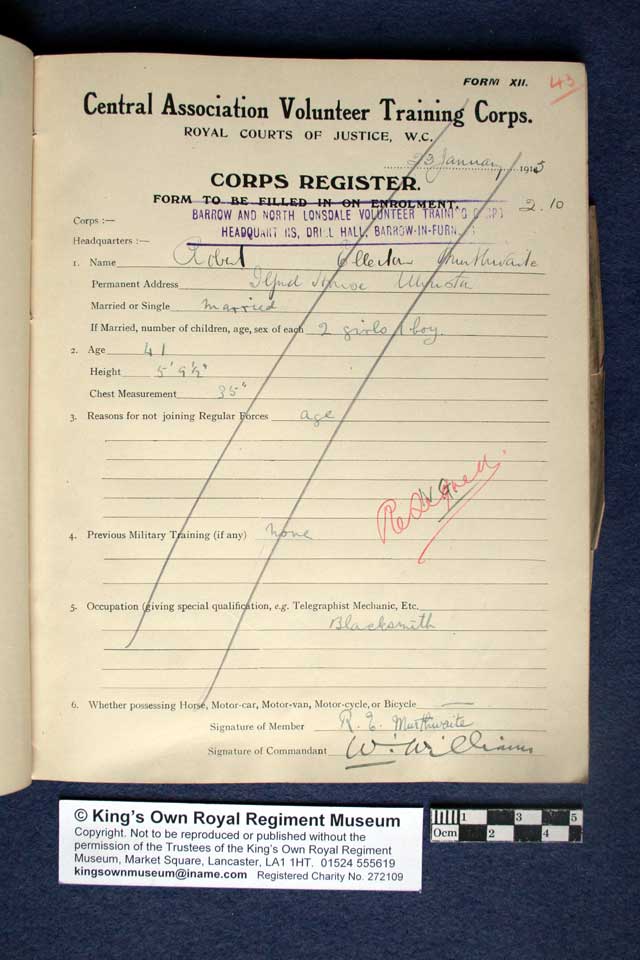 FORM XII.
43
Central Association Volunteer Training Corps.
ROYAL COURTS OF JUSTICE, W.C.
23 January 1915
CORPS REGISTER.
FORM TO BE FILLED IN ON ENROLMENT.
2.10
Corps :—
BARROW AND NORTH LONSDALE VOLUNTEER TRAINING CORPS
Headquarters :—
HEADQUARTERS, DRILL HALL, BARROW-IN-FURN
1. Name Robert Ellerton Murthwaite
Permanent Address House Ulverston
Married or Single married
If Married, number of children, age, sex of each 2 girls 1 boy.
2. Age 41
Height 5' 9½"
Chest Measurement 35"
3. Reasons for not joining Regular Forces age
Resigned.
4. Previous Military Training (if any) none
5. Occupation (giving special qualification, e.g. Telegraphist Mechanic, Etc.
Blacksmith
6. Whether possessing Horse, Motor-car, Motor-van, Motor-cycle, or Bicycle —
Signature of Member R. E. Murthwaite
Signature of Commandant W. Williams
© King's Own Royal Regiment Museum
Copyright. Not to be reproduced or published without the
permission of the Trustees of the King's Own Royal Regiment
Museum, Market Square, Lancaster, LA1 1HT. 01524 555619
kingsownmuseum@iname.com Registered Charity No. 272109
1 3 5
0cm 2 4